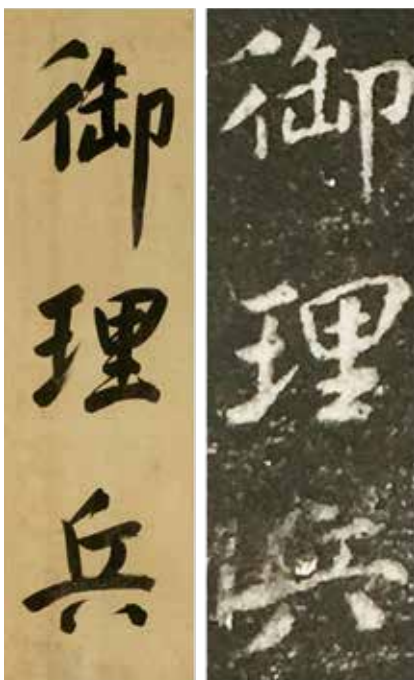 御理兵
御理兵